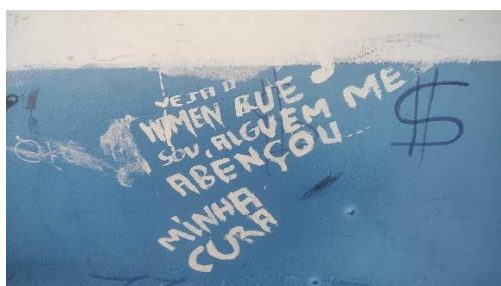 VEJA O
HMEN QUE
SOU, ALGUEM ME
ABENÇOU...
MINHA
CURA
$